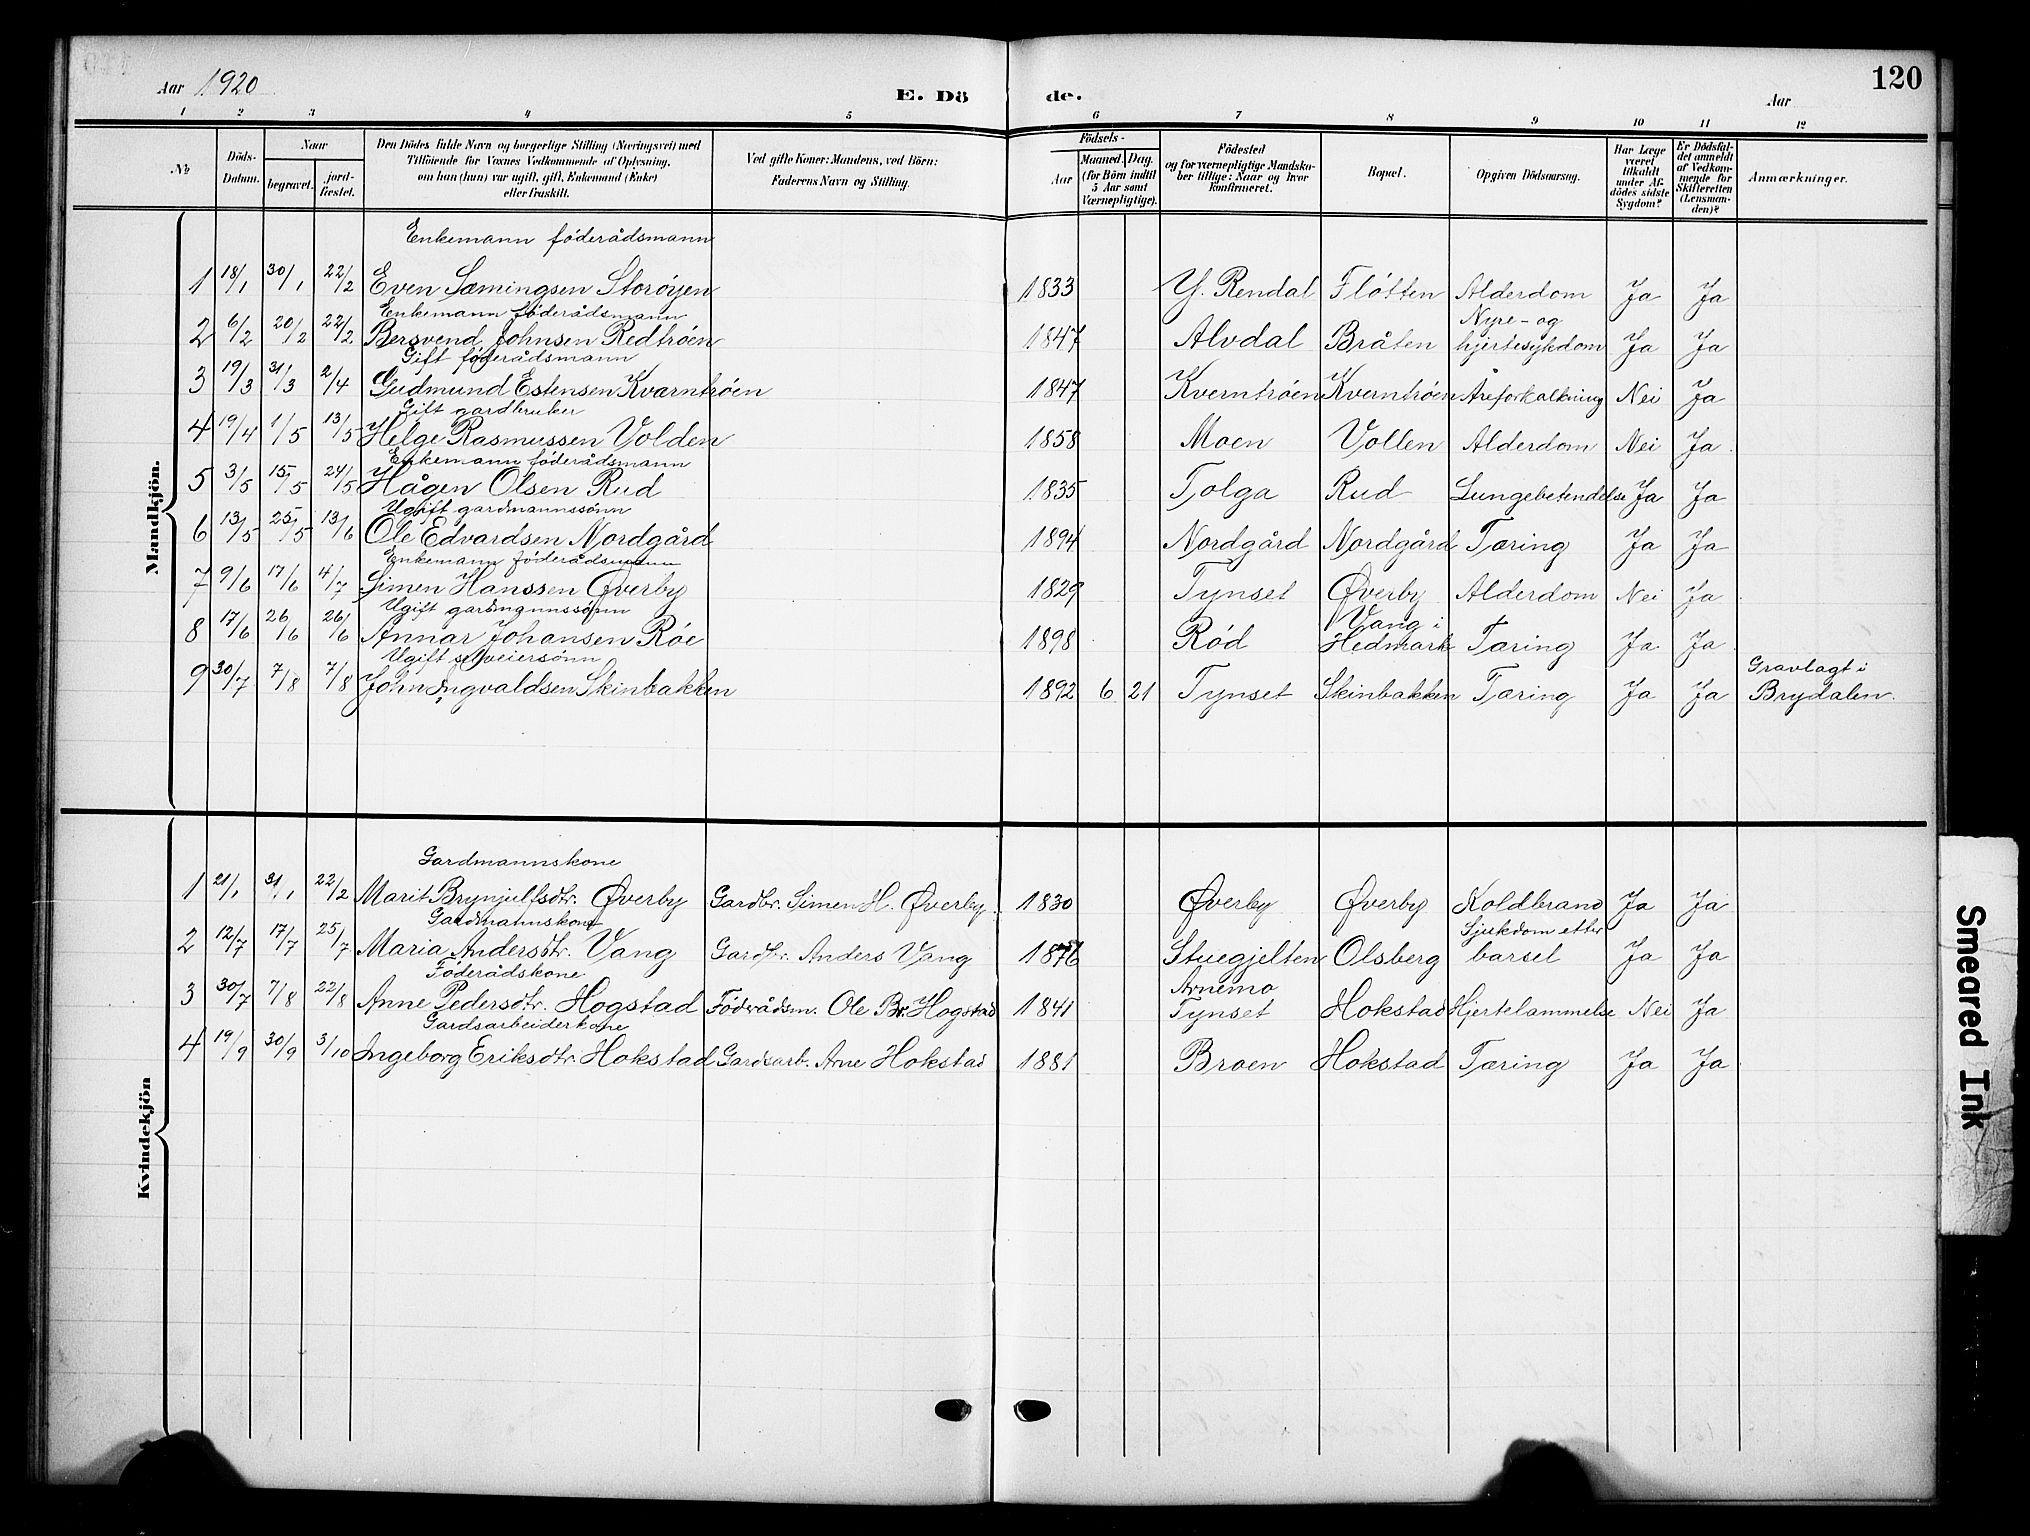 Aar 1920
E. Döde.
Aar
120
1 2 3 4 5 6 7 8 9 10 11 12
№
Döds-Datum.
Naar
begravet.
jord-fæstet.
Den Dödes fulde Navn og borgerlige Stilling (Næringsvei) med
Tilföiende for Voxnes Vedkommende af Oplysning,
om han (hun) var ugift, gift, Enkemand (Enke)
eller fraskilt.
Ved gifte Koner: Mandens, ved Börn:
Faderens Navn og Stilling.
Födsels-
Aar
Maaned. Dag.
(for Börn indtil
5 Aar samt
Værnepligtige).
Födested
og for værnepligtige Mandska-
ber tillige: Naar og hvor
konfirmeret.
Bopæl.
Opgiven Dödsaarsag.
Har Læge
været
tilkaldt
under Af-
dödes sidste
Sygdom?
Er Dödsfal-
det anmeldt
af Vedkom-
mende for
Skifteretten
(Lensman-
den)?
Anmærkninger.
Mandkjön.
Enkemann föderådsmann
1 18/1 30/1 22/2 Even Sæmingsen Storöyen 1833 Y. Rendal Fløtten Alderdom Ja Ja
Enkemann föderådsmann Nyre- og
2 6/2 20/2 22/2 Bersvend Johnsen Redtröen 1847 Alvdal Bråten hjertesykdom Ja Ja
Gift föderådsmann
3 19/3 31/3 2/4 Gudmund Estensen Kvarntröen 1847 Kverntröen Kverntröen Åreforkalkning Nei Ja
Gift gardbruker
4 19/4 1/5 13/5 Helge Rasmussen Volden 1858 Moen Vollen Alderdom Nei Ja
Enkemann föderådsmann
5 3/5 15/5 24/5 Hågen Olsen Rud 1835 Tolga Rud Lungebetendelse Ja Ja
Ugift gardmannssönn
6 13/5 25/5 13/6 Ole Edvardsen Nordgård 1894 Nordgård Nordgård Tæring Ja Ja
Enkemann föderådsmann
7 9/6 17/6 4/7 Simen Hanssen Øverby 1829 Tynset Øverby Alderdom Nei Ja
Ugift gardmannssönn Vang i
8 17/6 26/6 26/6 Annar Johansen Röe 1898 Röd Hedmark Tæring Ja Ja
Ugift selveiersönn Gravlagt i
9 30/7 7/8 7/8 John Ingvaldsen Skinbakken 1892 6 21 Tynset Skinbakken Tæring Ja Ja Brydalen.
Kvindekjön
Gardmannskone
1 21/1 31/1 22/2 Marit Brynjulfsdtr. Øverby Gardbr. Simen H. Øverby. 1830 Øverby Øverby Koldbrand Ja Ja
Gardmannskone Sjukdom etter
2 12/7 17/7 25/7 Maria Andersdtr. Vang Gardbr. Anders Vang 1876 Stuegjelten Olsberg barsel Ja Ja
Föderådskone Arnemo
3 30/7 7/8 22/8 Anne Pedersdtr. Hogstad Föderådsm. Ole Br. Hogstad 1841 Tynset Hokstad Hjertelammelse Nei Ja
Gardsarbeiderkone
4 19/9 30/9 3/10 Ingeborg Eriksdtr. Hokstad Gardsarb. Arne Hokstad 1881 Broen Hokstad Tæring Ja Ja
Smeared Ink